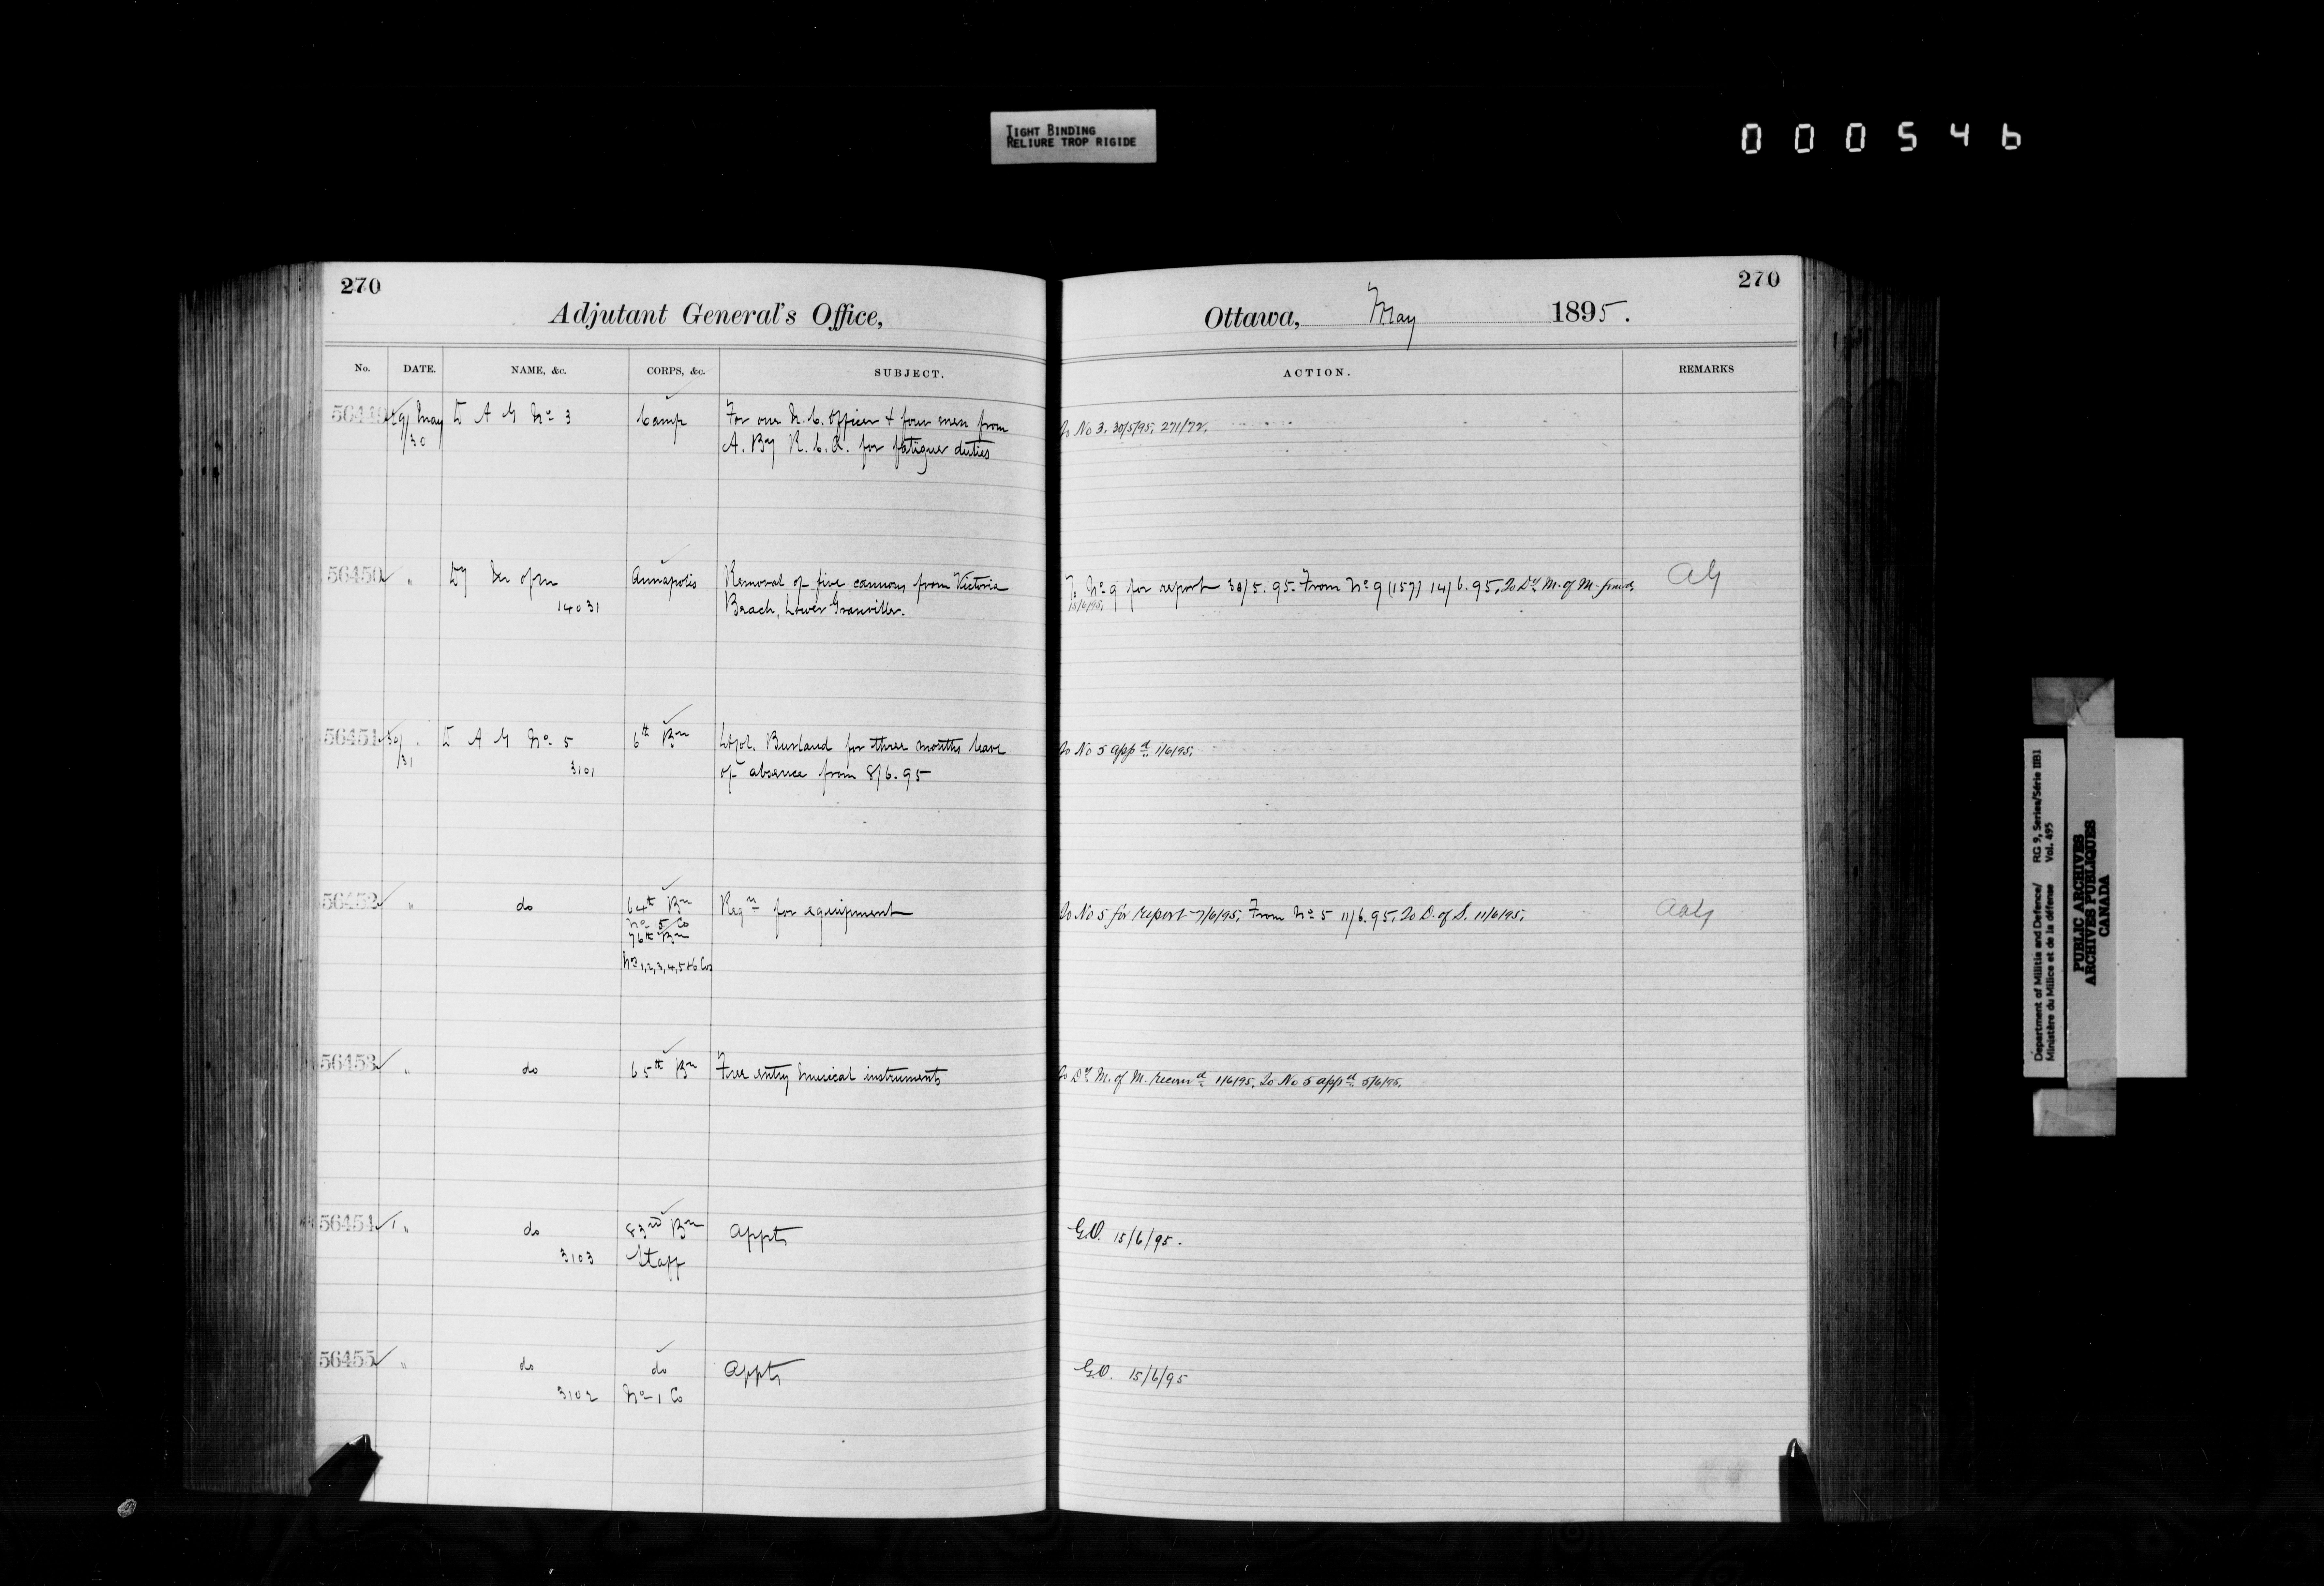 TIGHT BINDING
RELIURE TROP RIGIDE
000546
270
Adjutant General's Office,
No. DATE. NAME, &c. CORPS, &c. SUBJECT.
56449 29/ May D A G No 3 Camp For one N. C. Officer & four men from
/30 A. By R. C. A. for fatigue duties
56450 " Dy Mr of M Annapolis Removal of five cannons from Victoria
14031 Beach, Lower Granville.
56451 30/ " D A G No 5 6th Bn Lt Col. Burland for three months leave
/31 3101 of absence from 8/6.95
56452 " do 64th Bn Reqn for equipment
No 5 Co
76th Bn
Nos 1,2,3,4,5 & 6 Cos
56453 " do 65th Bn Free entry musical instruments
56454 " do 83rd Bn Appts
3103 Staff
56455 " do do Appts
3102 No 1 Co
270
Ottawa, May 1895.
ACTION. REMARKS
To No 3. 30/5/95. 271/72.
To No 9 for report 30/5.95. From No 9 (157) 14/6.95. To Dy M. of M. AG
15/6/95.
To No 5 appd 1/6/95.
To No 5 for report 7/6/95. From No 5 11/6.95. To D. of S. 11/6/95. AAG
To Dy M. of M. recomd 1/6/95. To No 5 appd 5/6/95.
G.O. 15/6/95.
G.O. 15/6/95
Department of Militia and Defence/ RG 9, Series/Série IIB1
Ministère du Milice et de la défense Vol. 495
PUBLIC ARCHIVES
ARCHIVES PUBLIQUES
CANADA